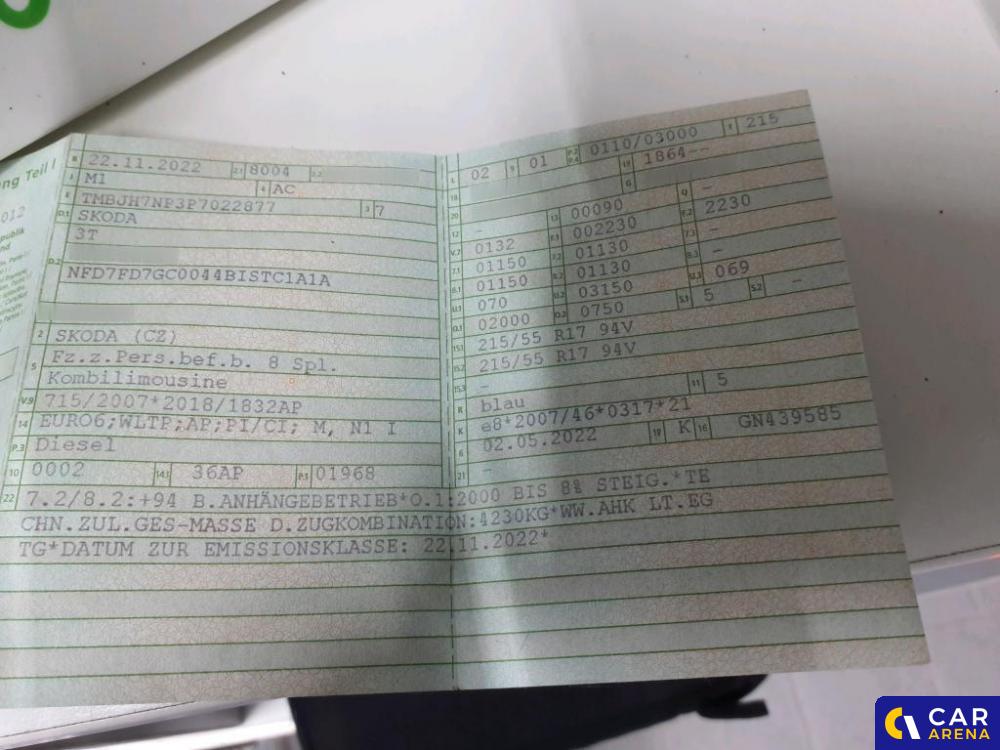 ng Teil I
012
B 22.11.2022 2.1 8004 2.2
J M1 4 AC
E TMBJH7NP3P7022877 3 7
D.1 SKODA
3T
D.2
NFD7FD7GC0044BISTC1A1A
2 SKODA (CZ)
5 Fz.z.Pers.bef.b. 8 Spl.
Kombilimousine
V.9 715/2007*2018/1832AP
14 EURO6;WLTP;AP;PI/CI; M, N1 I
P.3 Diesel
10 0002 14.1 36AP P.1 01968
L 02 9 01 P.2 P.4 0110/03000 T 215
18 19 1864--
20 G
12 - 13 00090 Q -
V.7 0132 F.1 002230 F.2 2230
7.1 01150 7.2 01130 7.3 -
8.1 01150 8.2 01130 8.3 -
U.1 070 U.2 03150 U.3 069
O.1 02000 O.2 0750 S.1 5 S.2 -
15.1 215/55 R17 94V
15.2 215/55 R17 94V
15.3 -
R blau 11 5
K e8*2007/46*0317*21
6 02.05.2022 17 K 16 GN439585
21 -
22 7.2/8.2:+94 B.ANHÄNGEBETRIEB*O.1:2000 BIS 8% STEIG.*TE
CHN.ZUL.GES-MASSE D.ZUGKOMBINATION:4230KG*WW.AHK LT.EG
TG*DATUM ZUR EMISSIONSKLASSE: 22.11.2022*
CAR
ARENA